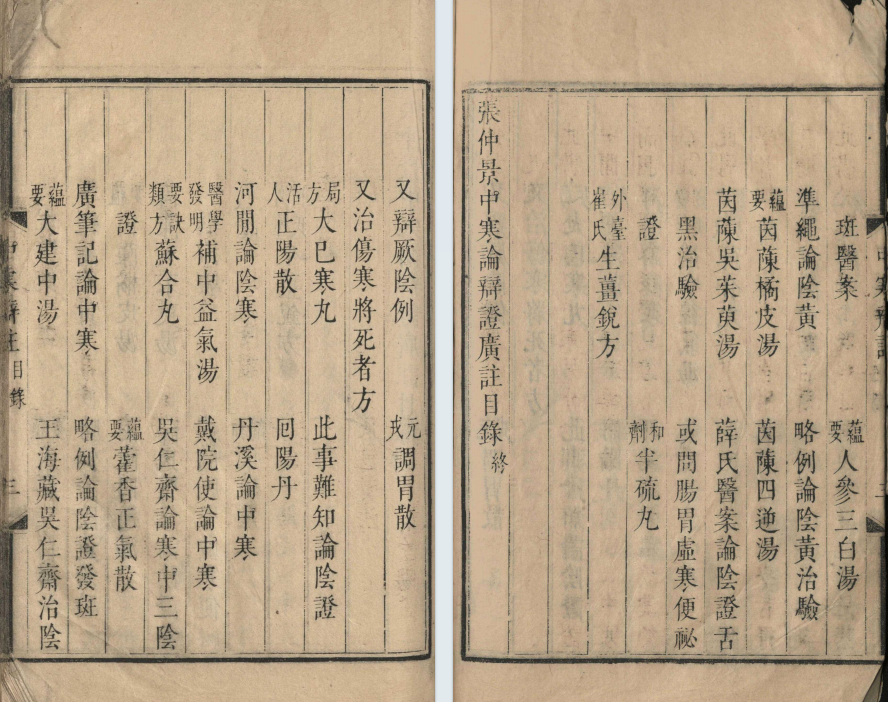 又辯厥陰例　元戎調胃散
又治傷寒將死者方
局方大已寒丸　此事難知論陰證
活人正陽散　囘陽丹
河閒論陰寒　丹溪論中寒
醫學發明補中益氣湯　戴院使論中寒
要訣類方蘇合丸　吳仁齋論寒中三陰
證　蘊要藿香正氣散
廣筆記論中寒　略例論陰證發斑
蘊要大建中湯　王海藏吳仁齋治陰
寒辯註　目錄　三
斑醫案　蘊要人參三白湯
準繩論陰黃　略例論陰黃治驗
蘊要茵蔯橘皮湯　茵蔯四逆湯
茵蔯吳茱萸湯　薛氏醫案論陰證舌
黑治驗　或問腸胃虛寒便祕
證　和劑半硫丸
外臺崔氏生薑銳方
張仲景中寒論辯證廣註目錄終